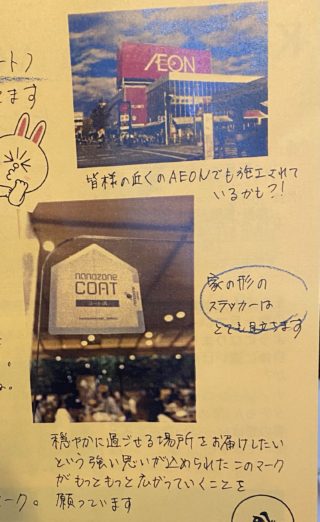 ート)
ます
AEON
皆様の近くのAEONでも施工されて
いるかも?!
nanozone
COAT
コート済
家の形の
ステッカーは
とても目立ちます
穏やかに過ごせる場所をお届けしたい
という強い思いが込められたこのマーク
がもっともっと広がっていくことを
ーク。
願っています